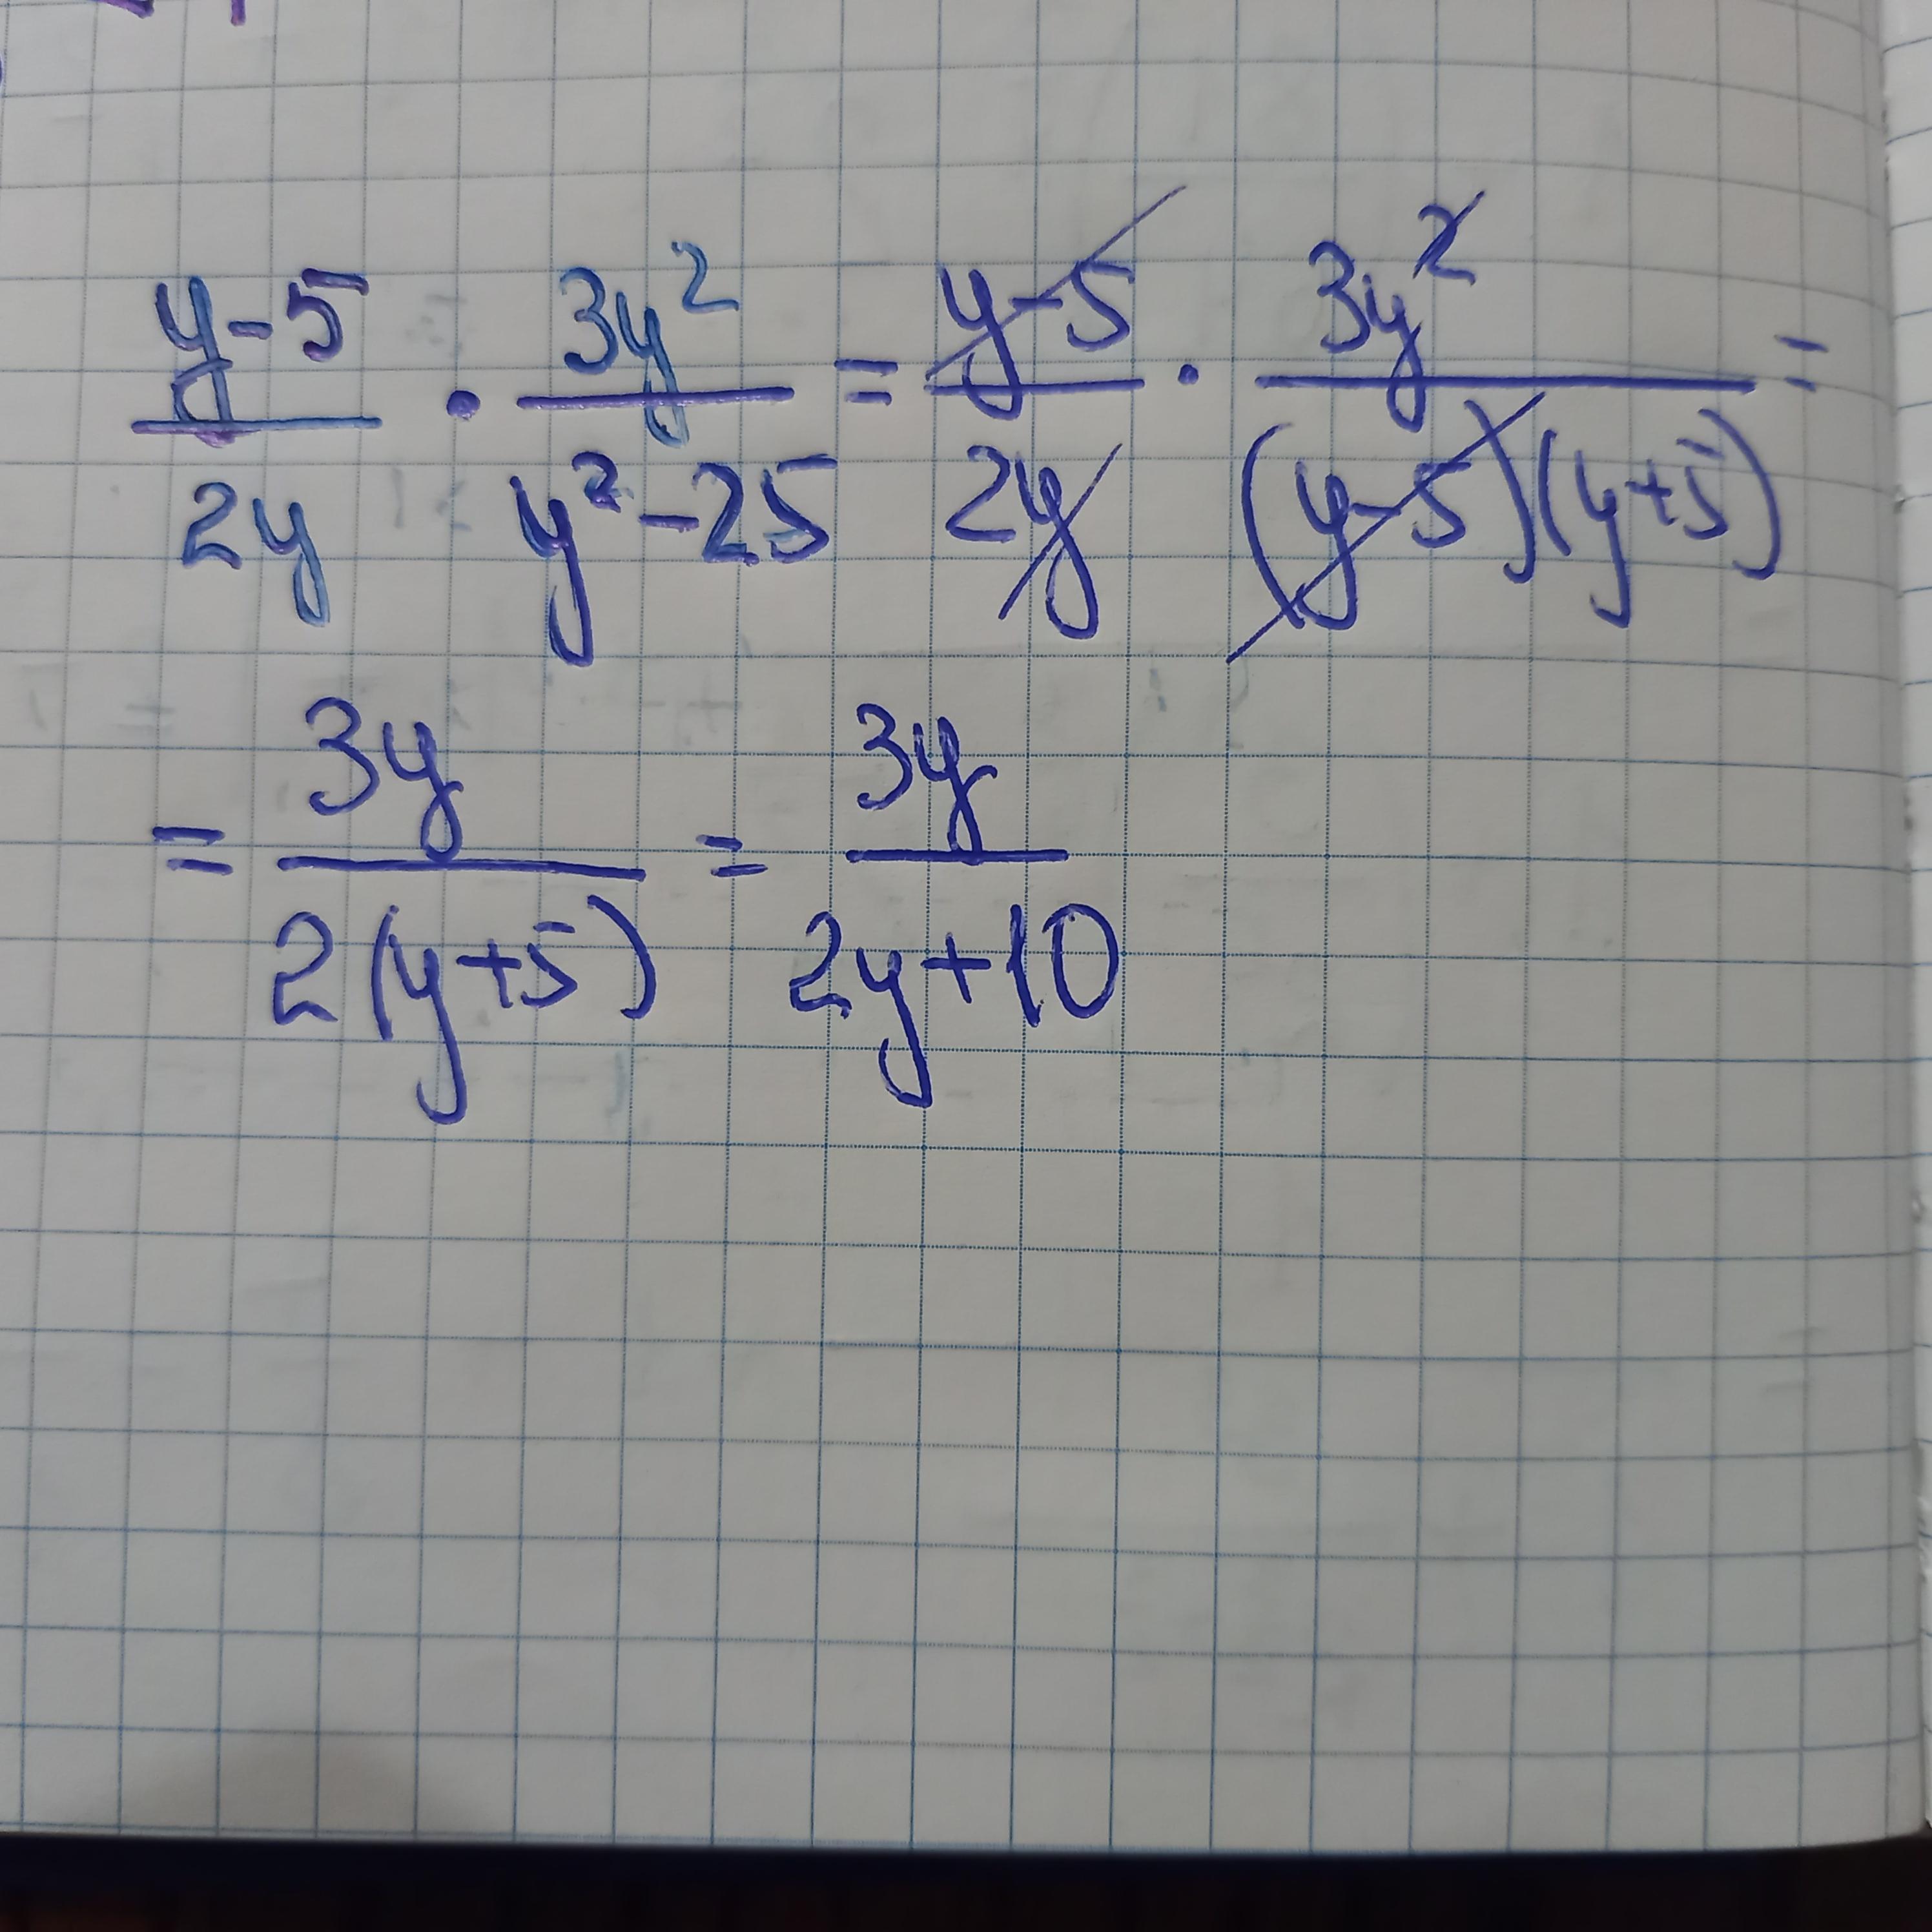 y-5/2y · 3y²/y²-25 = y-5/2y · 3y²/(y-5)(y+5) =
= 3y/2(y+5) = 3y/2y+10